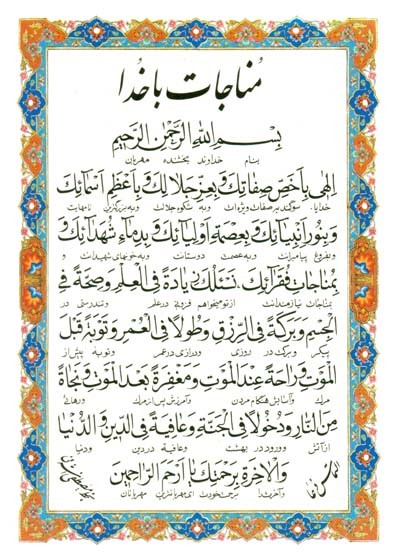 مناجات با خدا
بِسْمِ اللهِ الرَّحْمٰنِ الرَّحیمِ
بنام خداوند بخشنده مهربان
اِلهٰی بِاَخَصِّ صِفاتِكَ وَ بِعِزِّ جَلالِكَ وَ بِاَعْظَمِ اَسْمائِكَ
خدایا، سوگند به صفات ویژه‌ات و به شکوه جلالت و به بزرگترین نامهایت
وَ بِنُورِ اَنْبِیائِكَ وَ بِعِصْمَةِ اَوْلِیائِكَ وَ بِدِماءِ شُهَدائِكَ وَ
و بفروغ پیامبرانت و به عصمت دوستانت و به خونهای شهیدانت و
بِمُناجاتِ فُقَرائِكَ. نَسْئَلُكَ زِیادَةً فِی الْعِلْمِ وَ صِحَّةً فِی
بمناجات نیازمندانت از تو میخواهم فزونی در علم و تندرستی در
الْجِسْمِ وَ بَرَکَةً فِی الرِّزْقِ وَ طُولاً فِی الْعُمْرِ وَ تَوْبَةً قَبْلَ
پیکر و برکت در روزی و درازی در عمر و توبه پیش از
الْمَوْتِ وَ راحَةً عِنْدَ الْمَوْتِ وَ مَغْفِرَةً بَعْدَ الْمَوْتِ وَ نَجاةً
مرگ و آسایش هنگام مردن و آمرزش پس از مرگ و رهائی
مِنَ النّارِ وَ دُخُولاً فِی الْجَنَّةِ وَ عافِیَةً فِی الدّینِ وَ الدُّنْیا
از آتش و ورود در بهشت و عافیة در دین و دنیا
وَ الْاٰخِرَةِ بِرَحْمَتِكَ یا اَرْحَمَ الرّاحِمینَ
و آخرت، برحمت خودت ای مهربانترین مهربانان
التماس دعا